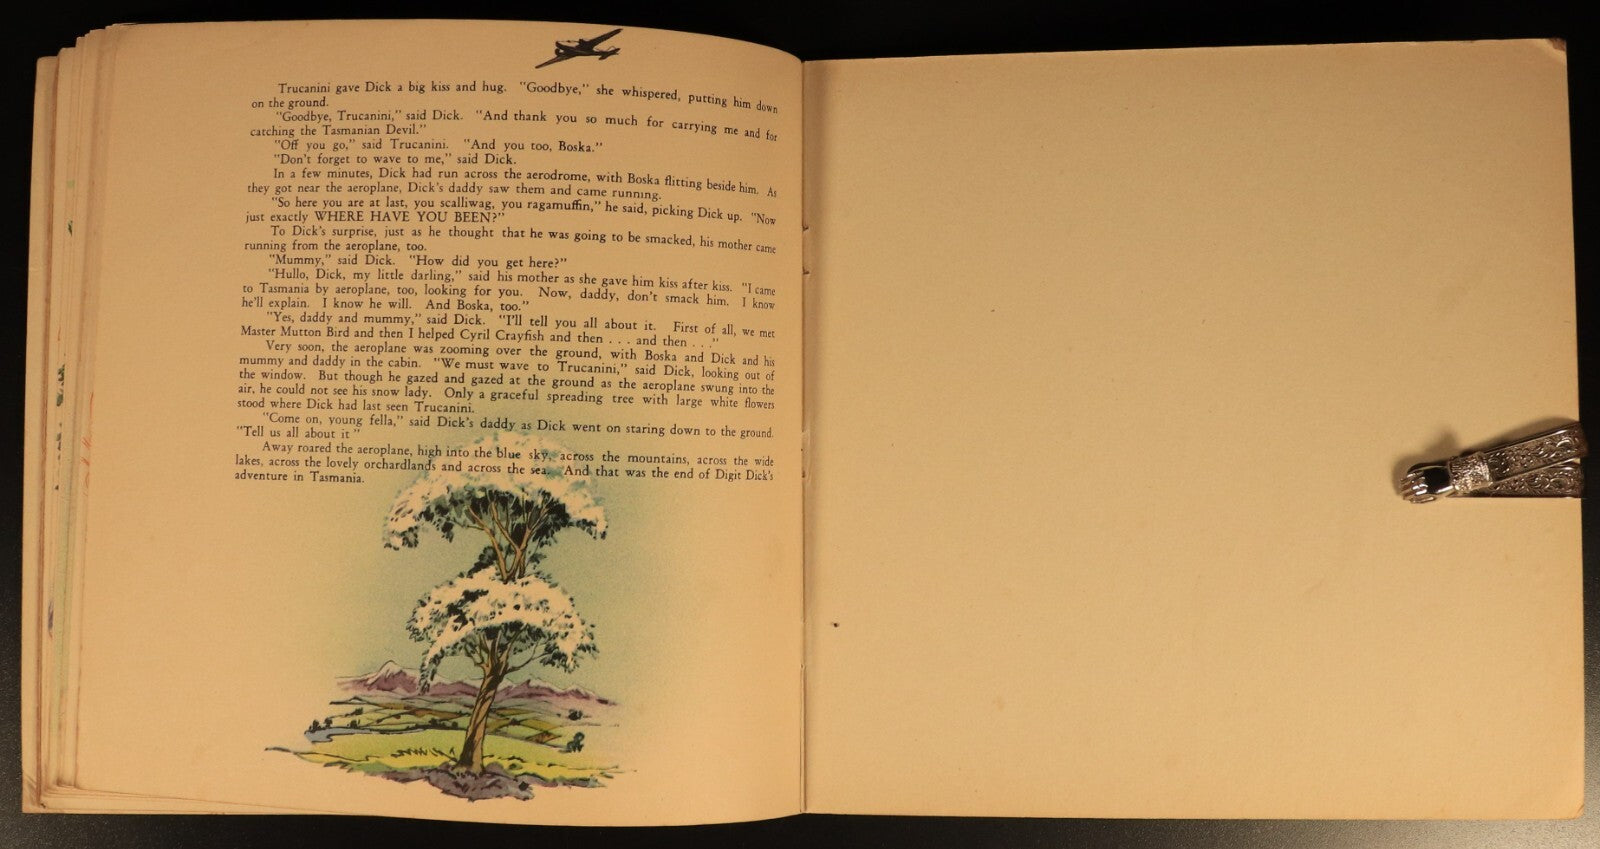 Trucanini gave Dick a big kiss and hug. "Goodbye," she whispered, putting him down
on the ground.
"Goodbye, Trucanini," said Dick. "And thank you so much for carrying me and for
catching the Tasmanian Devil."
"Off you go," said Trucanini. "And you too, Boska."
"Don't forget to wave to me," said Dick.
In a few minutes, Dick had run across the aerodrome, with Boska flitting beside him. As
they got near the aeroplane, Dick's daddy saw them and came running.
"So here you are at last, you scalliwag, you ragamuffin," he said, picking Dick up. "Now
just exactly WHERE HAVE YOU BEEN?"
To Dick's surprise, just as he thought that he was going to be smacked, his mother came
running from the aeroplane, too.
"Mummy," said Dick. "How did you get here?"
"Hullo, Dick, my little darling," said his mother as she gave him kiss after kiss. "I came
to Tasmania by aeroplane, too, looking for you. Now, daddy, don't smack him. I know
he'll explain. I know he will. And Boska, too."
"Yes, daddy and mummy," said Dick. "I'll tell you all about it. First of all, we met
Master Mutton Bird and then I helped Cyril Crayfish and then . . . and then . . ."
Very soon, the aeroplane was zooming over the ground, with Boska and Dick and his
mummy and daddy in the cabin. "We must wave to Trucanini," said Dick, looking out of
the window. But though he gazed and gazed at the ground as the aeroplane swung into the
air, he could not see his snow lady. Only a graceful spreading tree with large white flowers
stood where Dick had last seen Trucanini.
"Come on, young fella," said Dick's daddy as Dick went on staring down to the ground.
"Tell us all about it"
Away roared the aeroplane, high into the blue sky, across the mountains, across the wide
lakes, across the lovely orchardlands and across the sea. And that was the end of Digit Dick's
adventure in Tasmania.